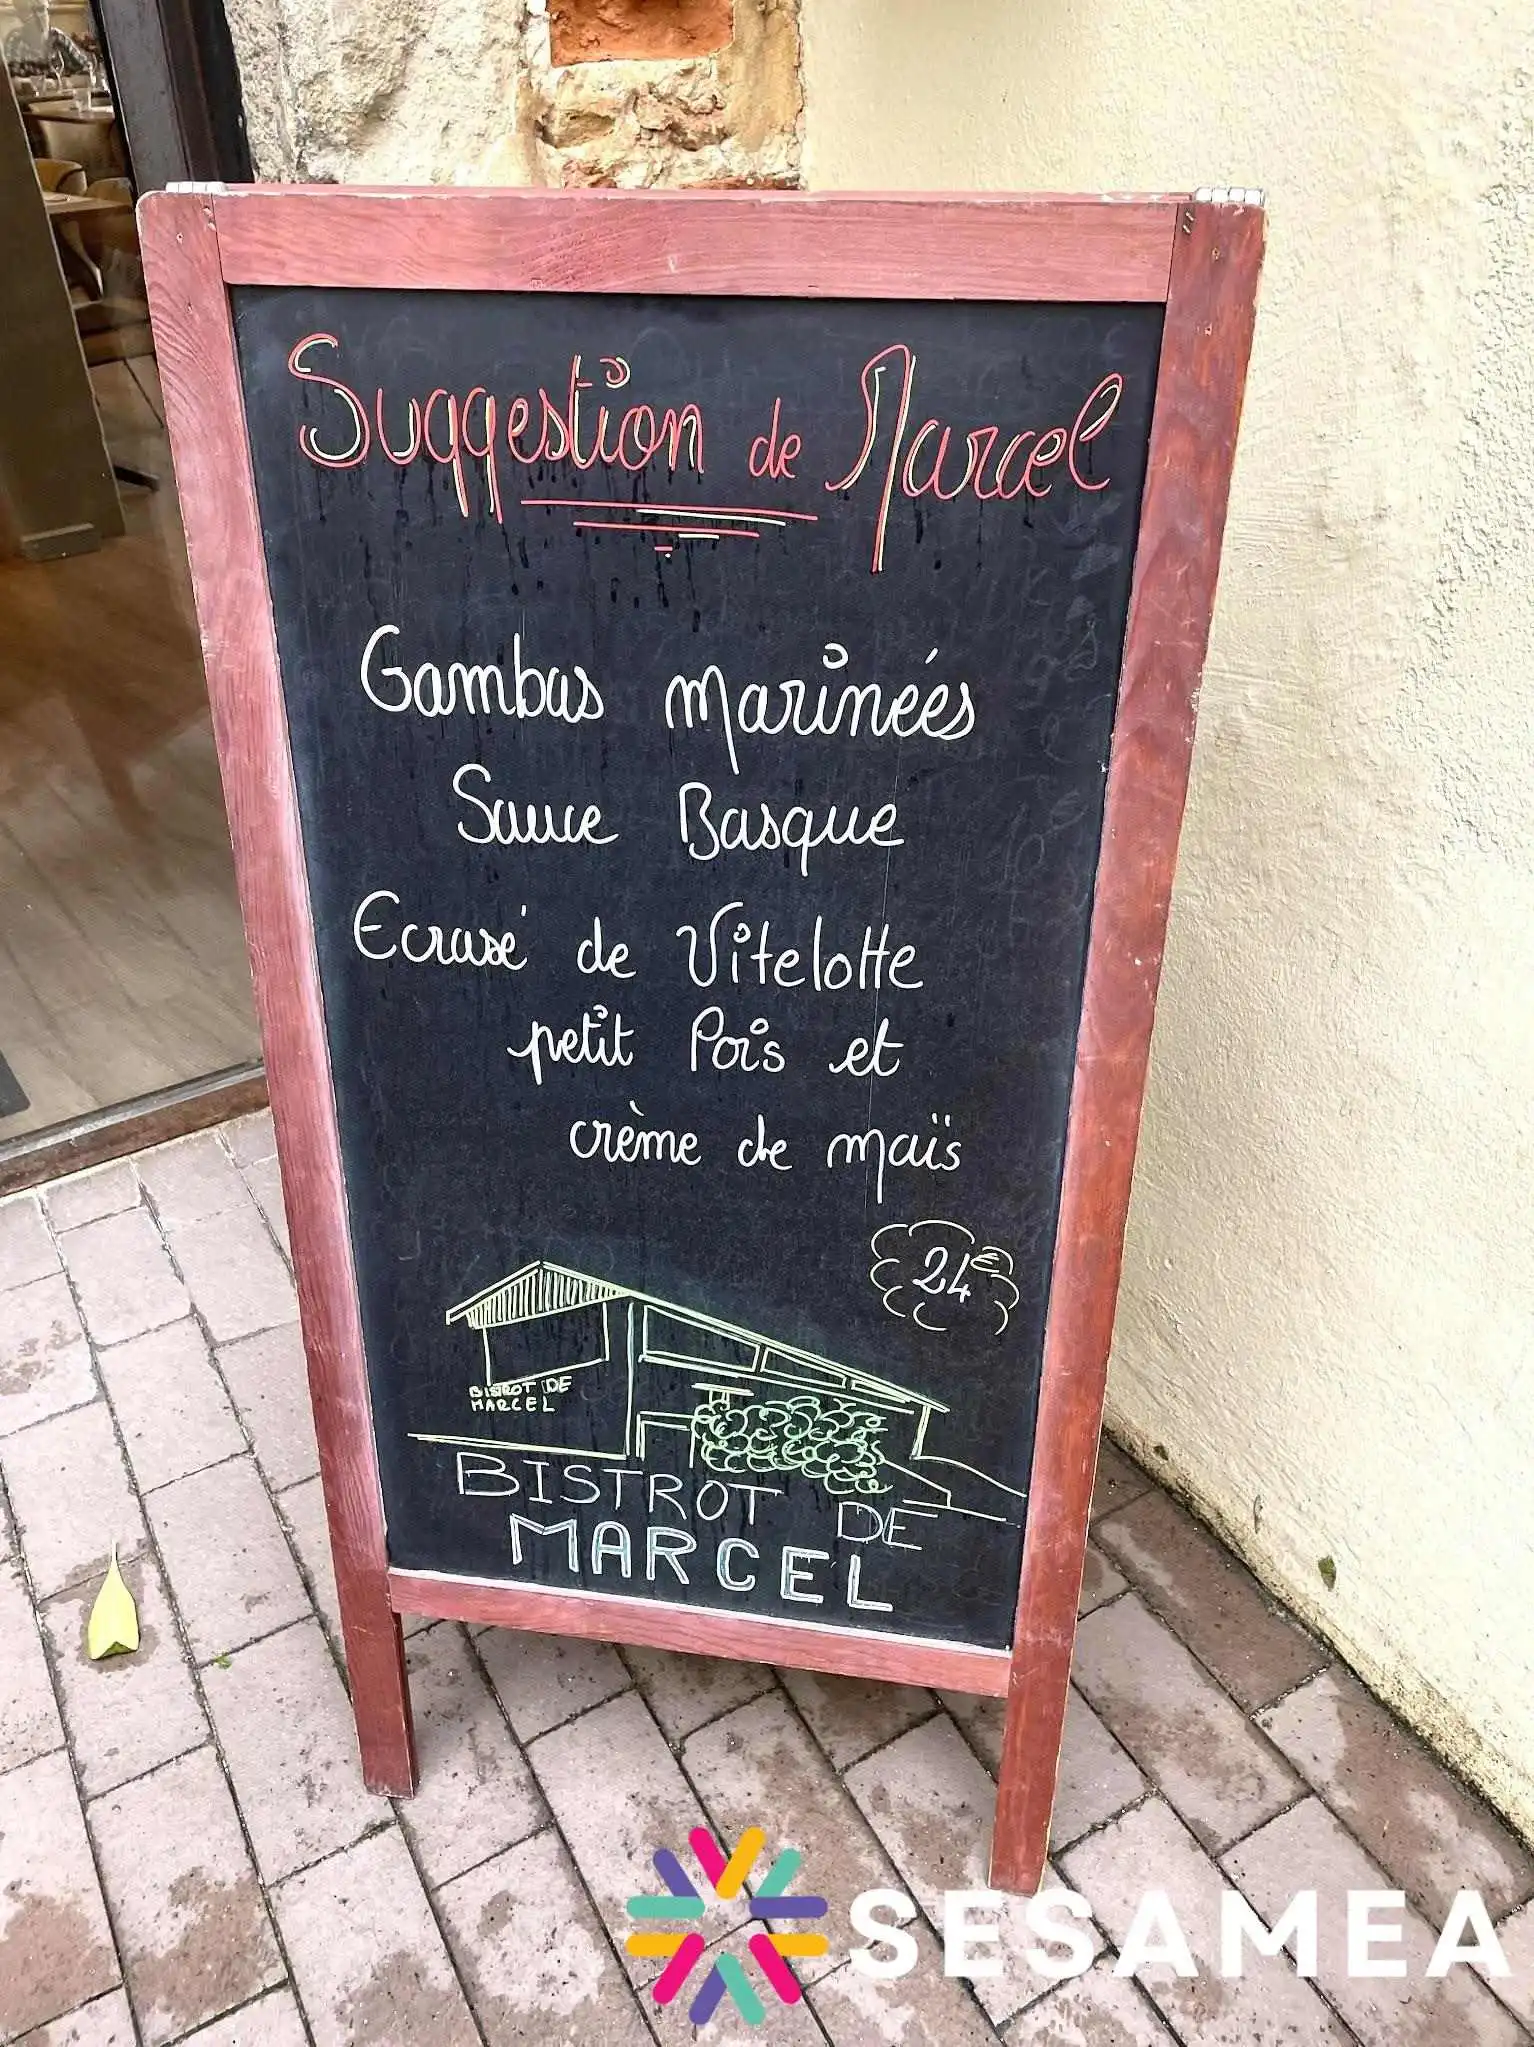 Suggestion de Marcel
Gambas marinées
Sauce Basque
Ecrasé de Vitelotte
petit Pois et
crème de maïs
24€
BISTROT DE
MARCEL
BISTROT DE
MARCEL
SESAMEA